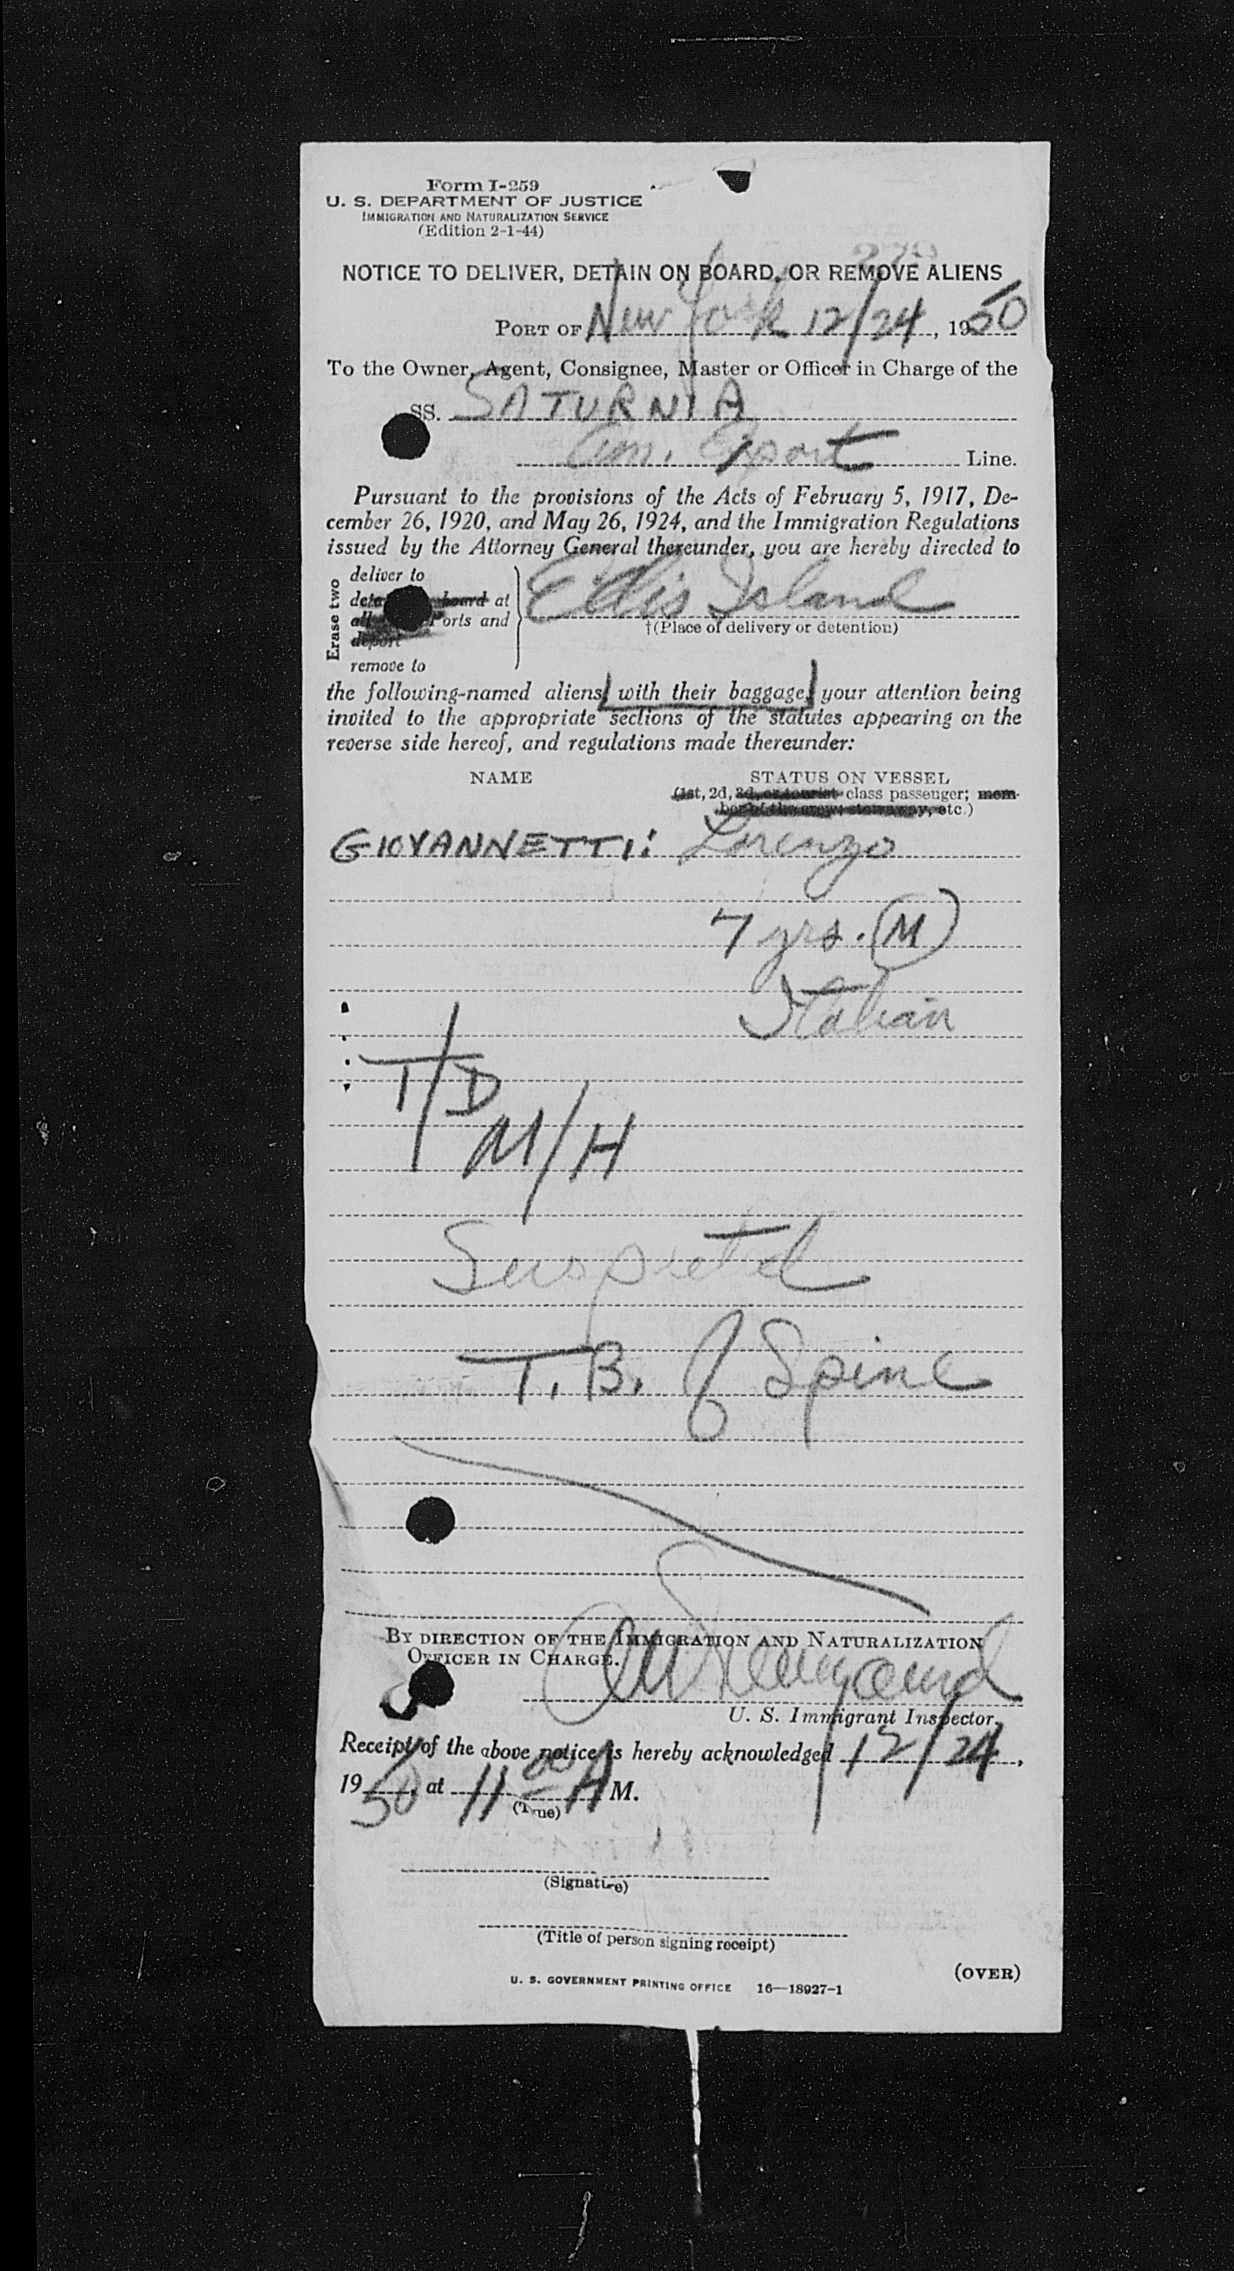 Form I-259
U. S. DEPARTMENT OF JUSTICE
IMMIGRATION AND NATURALIZATION SERVICE
(Edition 2-1-44)
NOTICE TO DELIVER, DETAIN ON BOARD, OR REMOVE ALIENS
PORT OF New York 12/24, 1950
To the Owner, Agent, Consignee, Master or Officer in Charge of the
SS. SATURNIA
Am. Export Line.
Pursuant to the provisions of the Acts of February 5, 1917, De-
cember 26, 1920, and May 26, 1924, and the Immigration Regulations
issued by the Attorney General thereunder, you are hereby directed to
Erase two
deliver to
board at
Ports and
deport
remove to
Ellis Island
†(Place of delivery or detention)
the following-named aliens, with their baggage, your attention being
invited to the appropriate sections of the statutes appearing on the
reverse side hereof, and regulations made thereunder:
NAME STATUS ON VESSEL
(1st, 2d, 3d, or tourist class passenger; mem-
ber of the crew; stowaway, etc.)
GIOVANNETTI: Lorenzo
7 yrs. (M)
Italian
T/D
M/H
Suspected
T. B. of Spine
BY DIRECTION OF THE IMMIGRATION AND NATURALIZATION
OFFICER IN CHARGE.
U. S. Immigrant Inspector.
Receipt of the above notice is hereby acknowledged 12/24,
1950, at 11 00 A M.
(Time)
(Signature)
(Title of person signing receipt)
(OVER)
U. S. GOVERNMENT PRINTING OFFICE 16—18927-1